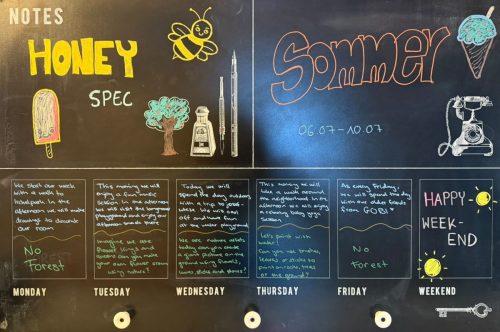 NOTES
HONEY
SPEC
Sommer
06.07-10.07
We start our week
with a walk to
In the
afternoon we will make
to decorate
our room
No
Forest
MONDAY
This morning we will
enjoy a fun music
session. In the afternoon
we will visit the
playground and enjoy our
afternoon snack there
Imagine we are
forest kings and
queens can you make
your own flower crown
using nature?
TUESDAY
Today we will
spend the day outdoors
with a trip to
We will
eat and have fun
at the water playground
We are nature artists
today can you create
a giant picture on the
ground using
leaves, sticks and stones?
WEDNESDAY
This morning we will
take a walk around
the neighborhood. In the
afternoon we will enjoy
a relaxing baby yoga
session
Let's paint with
water!
Can you use brushes,
leaves or sticks to
paint on rocks, trees
or the ground?
THURSDAY
As every Friday,
we will spend the day
with the older friends
from GOBI
No
Forest
FRIDAY
HAPPY
WEEK-
END
WEEKEND